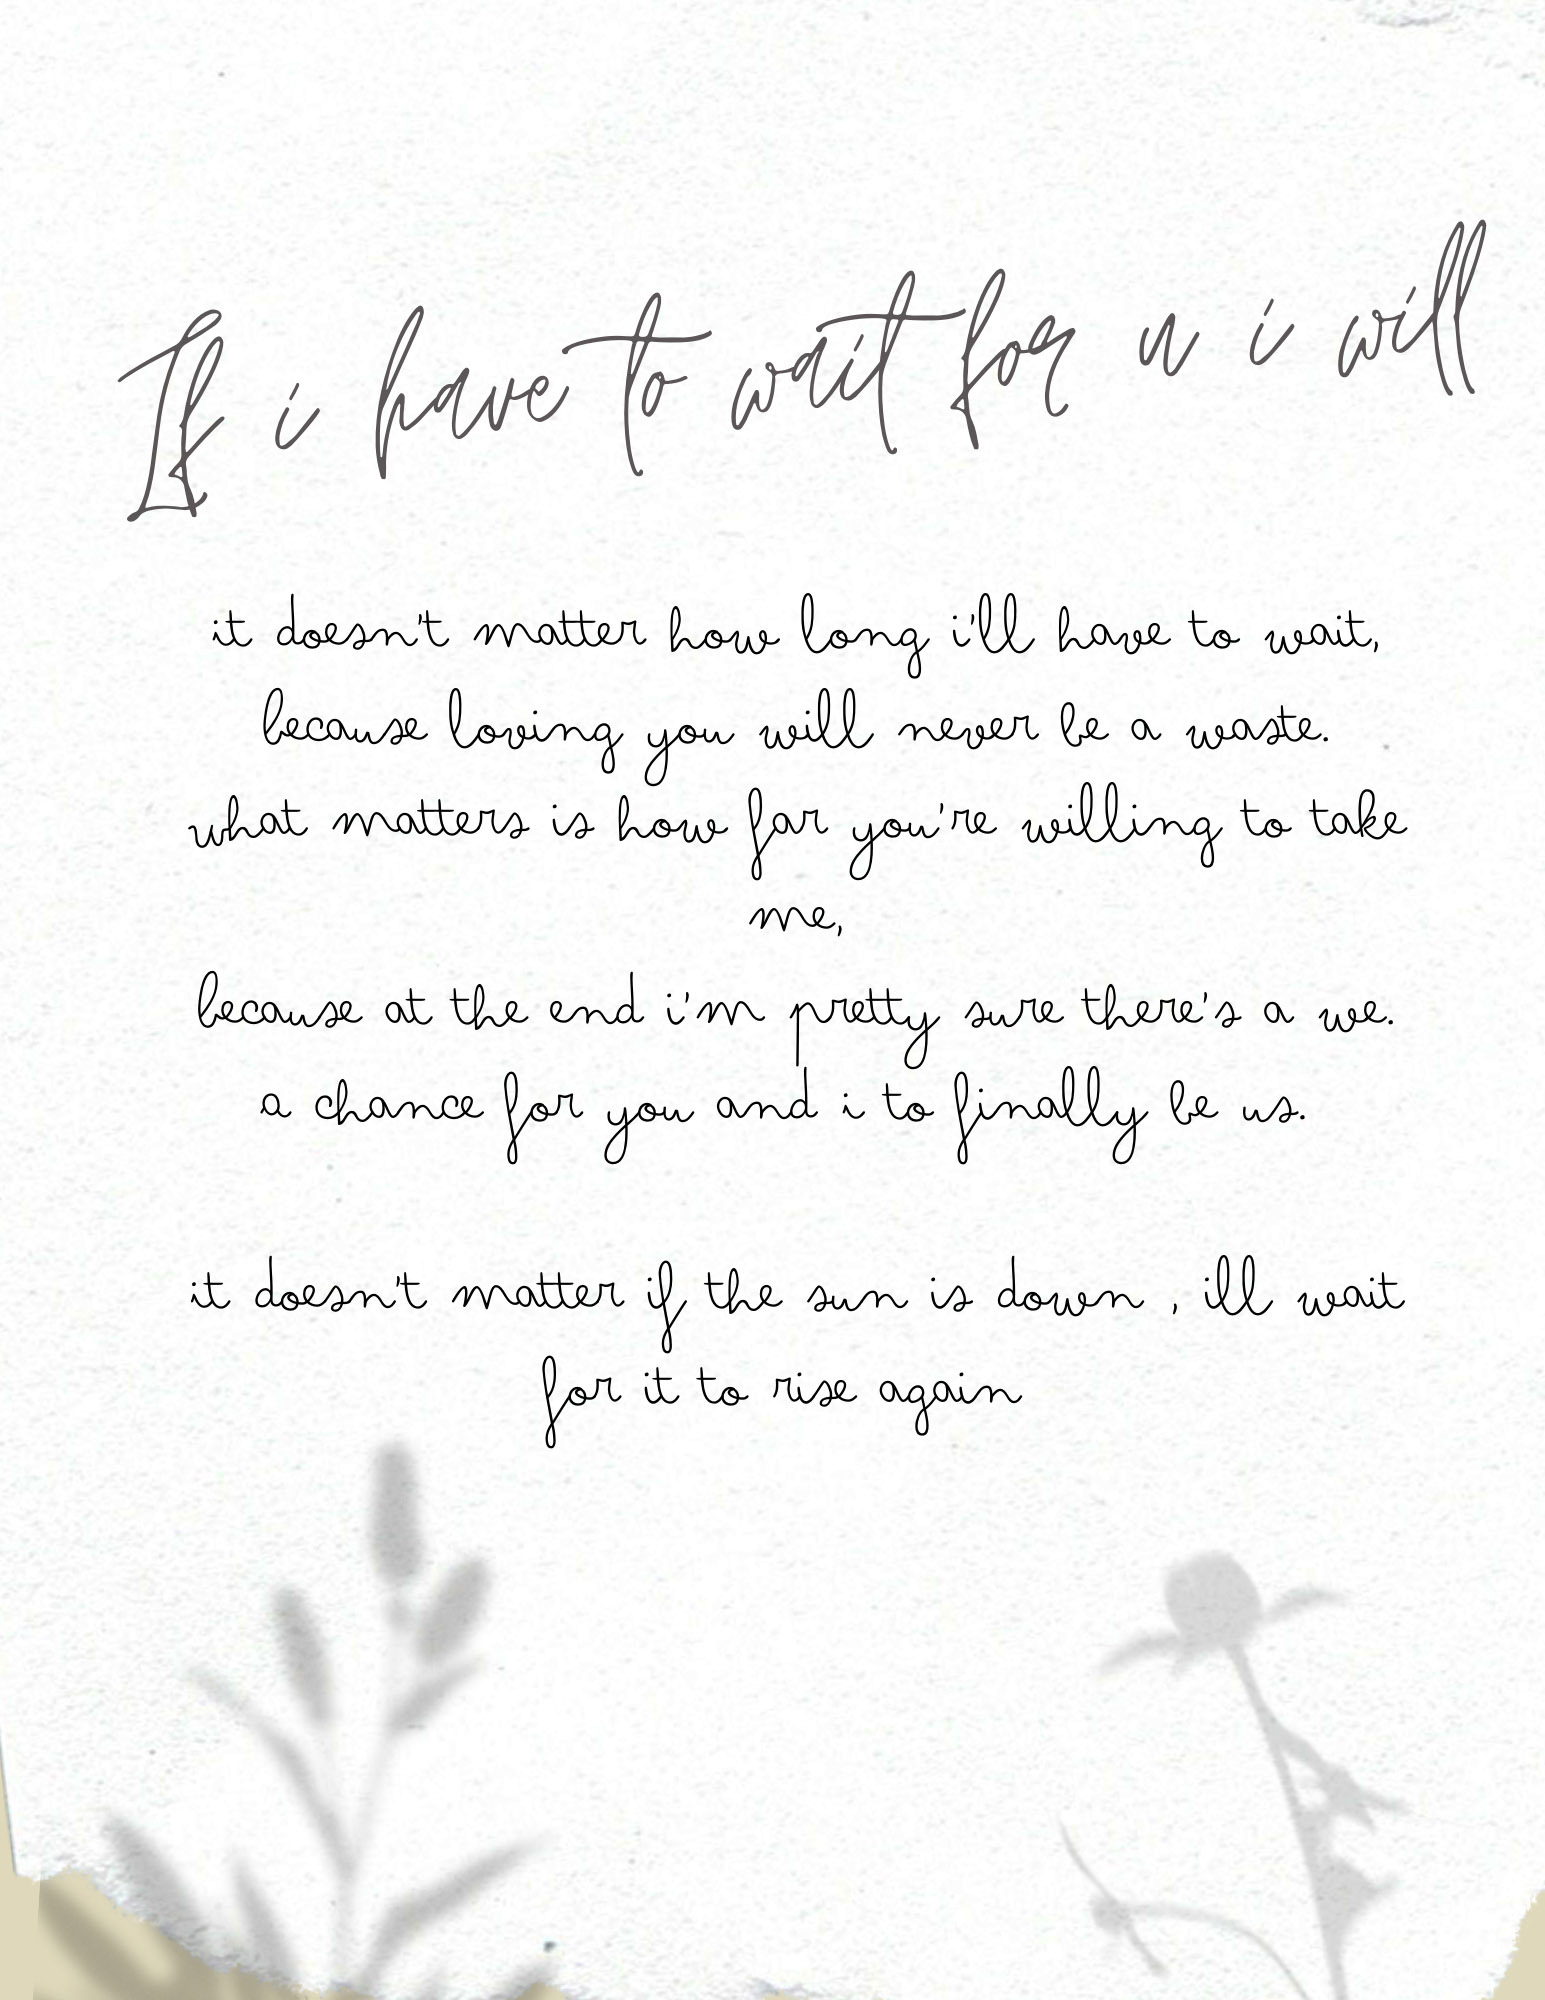 If i have to wait for u i will
it doesn't matter how long i'll have to wait,
because loving you will never be a waste.
what matters is how far you're willing to take
me,
because at the end i'm pretty sure there's a we.
a chance for you and i to finally be us.
it doesn't matter if the sun is down , ill wait
for it to rise again